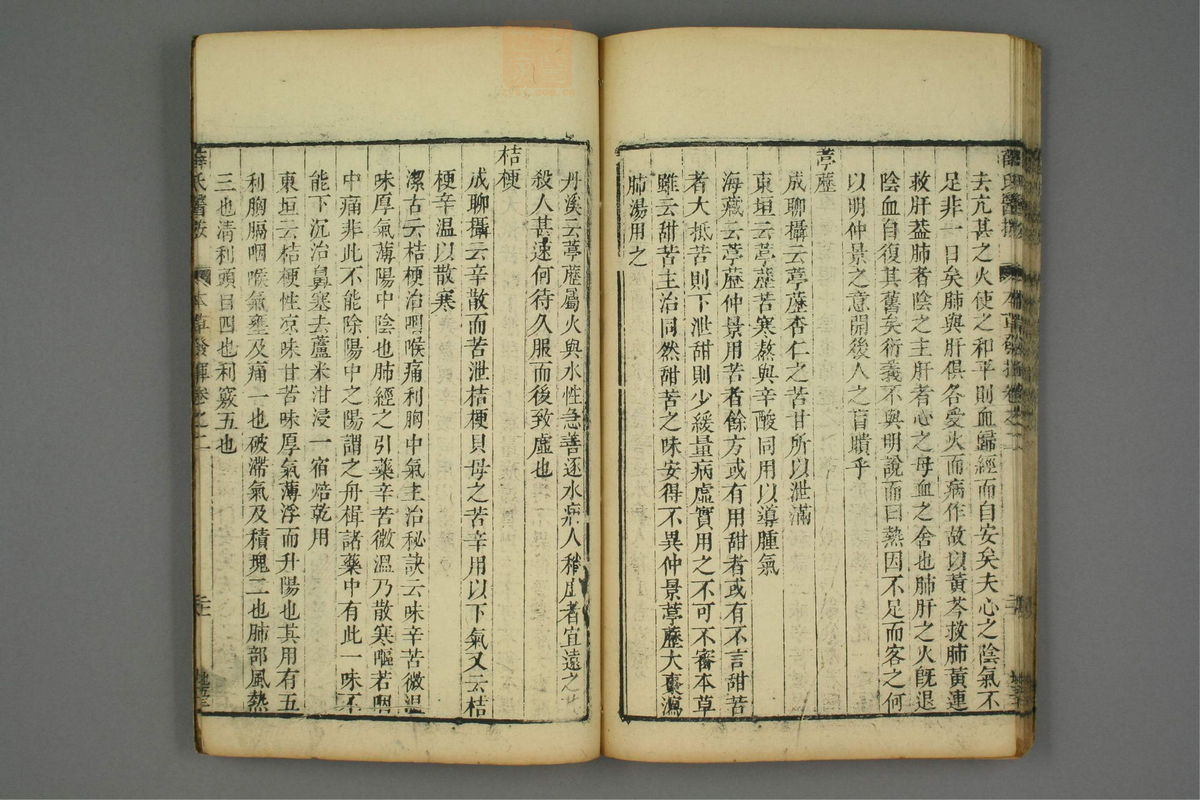 去亢甚之火使之和平則血歸經而自安矣夫心之陰氣不
足非一日矣肺與肝俱各受火而病作故以黃芩救肺黃連
救肝益肺者陰之主肝者心之母血之舍也肺肝之火旣退
陰血自復其舊矣衍義不與明說而曰熱因不足而客之何
以明仲景之意開後人之盲瞶乎
葶藶
成聊攝云葶藶杏仁之苦甘所以泄滿
東垣云葶藶苦寒熬與辛酸同用以導腫氣
海藏云葶藶仲景用苦者餘方或有用甜者或有不言甜苦
者大抵苦則下泄甜則少緩量病虛實用之不可不審本草
雖云甜苦主治同然甜苦之味安得不異仲景葶藶大棗瀉
肺湯用之
丹溪云葶藶屬火與水性急善逐水病人稍虛者宜遠之
殺人甚速何待久服而後致虛也
桔梗
成聊攝云辛散而苦泄桔梗貝母之苦辛用以下氣又云桔
梗辛溫以散寒
潔古云桔梗治咽喉痛利胸中氣主治秘訣云味辛苦微溫
味厚氣薄陽中陰也肺經之引藥辛苦微溫乃散寒嘔若咽
中痛非此不能除陽中之陽謂之舟楫諸藥中有此一味不
能下沉治鼻塞去蘆米泔浸一宿焙乾用
東垣云桔梗性凉味甘苦味厚氣薄浮而升陽也其用有五
利胸膈咽喉氣壅及痛一也破滯氣及積塊二也肺部風熱
三也清利頭目四也利竅五也
薛氏醫按 本草發揮卷之二